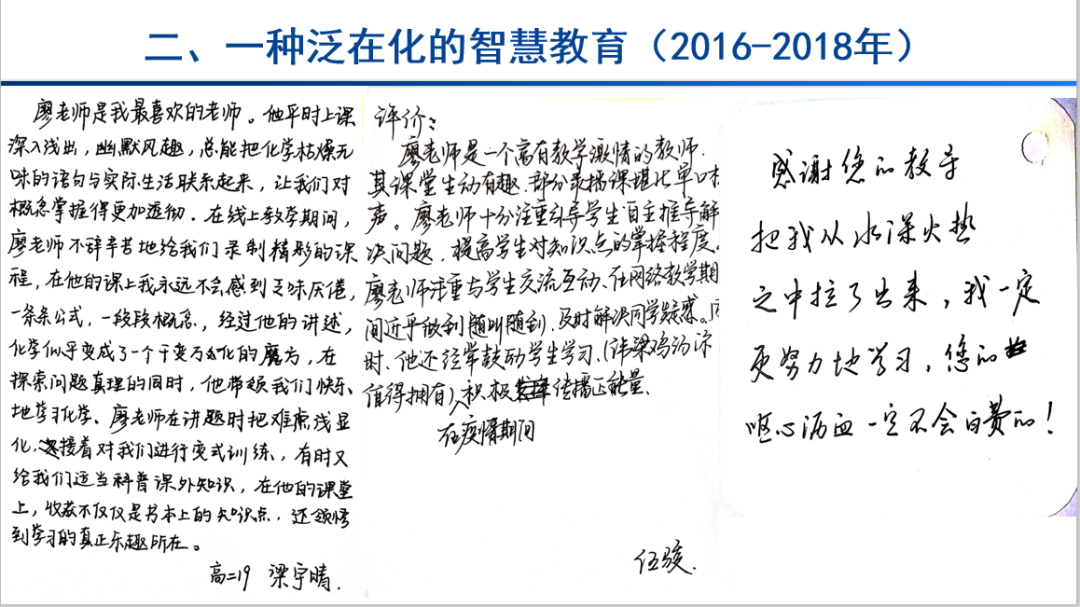 二、一种泛在化的智慧教育（2016-2018年）
廖老师是我最喜欢的老师。他平时上课
深入浅出，幽默风趣，总能把化学枯燥无
味的语句与实际生活联系起来，让我们对
概念掌握得更加透彻。在线上教学期间，
廖老师不辞辛苦地给我们录制精彩的课
程，在他的课上我永远不会感到乏味厌倦，
一条条公式，一段段概念，经过他的讲述，
化学似乎变成了一个千变万化的魔方，在
探索问题真理的同时，他带领我们快乐
地学习化学。廖老师在讲题时把难点浅显
化，接着对我们进行变式训练，有时又
给我们适当科普课外知识，在他的课堂
上，收获不仅仅是书本上的知识点，还领悟
到学习的真正乐趣所在。
高二19 梁宇晴.
评价：
廖老师是一个富有教学激情的教师.
其课堂生动有趣.部分录播课堪比单口相
声。廖老师十分注重引导学生自主推导解
决问题，提高学生对知识点的掌握程度.
廖老师注重与学生交流互动、在网络教学期
间近乎做到随叫随到.及时解决同学疑惑。同
时、他还经常鼓励学生学习、(讲梁鸡汤你
值得拥有),积极传播正能量.
在疫情期间
伍骏.
感谢您的教导
把我从水深火热
之中拉了出来，我一定
更努力地学习，您的
呕心沥血一定不会白费的！